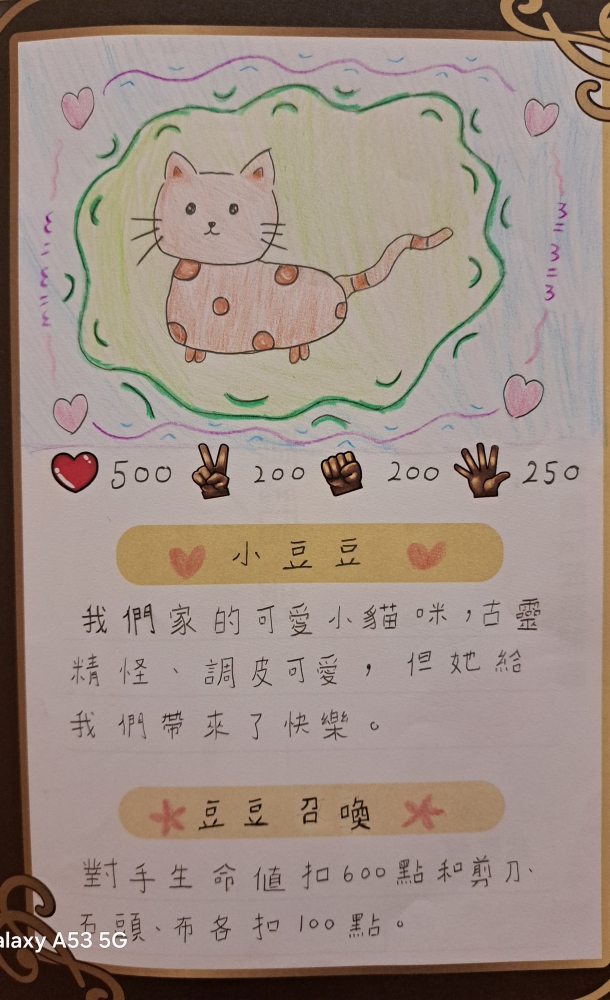 500 200 200 250
小豆豆
我們家的可愛小貓咪,古靈
精怪、調皮可愛,但她給
我們帶來了快樂。
豆豆召喚
對手生命值扣600點和剪刀、
石頭、布各扣100點。
alaxy A53 5G